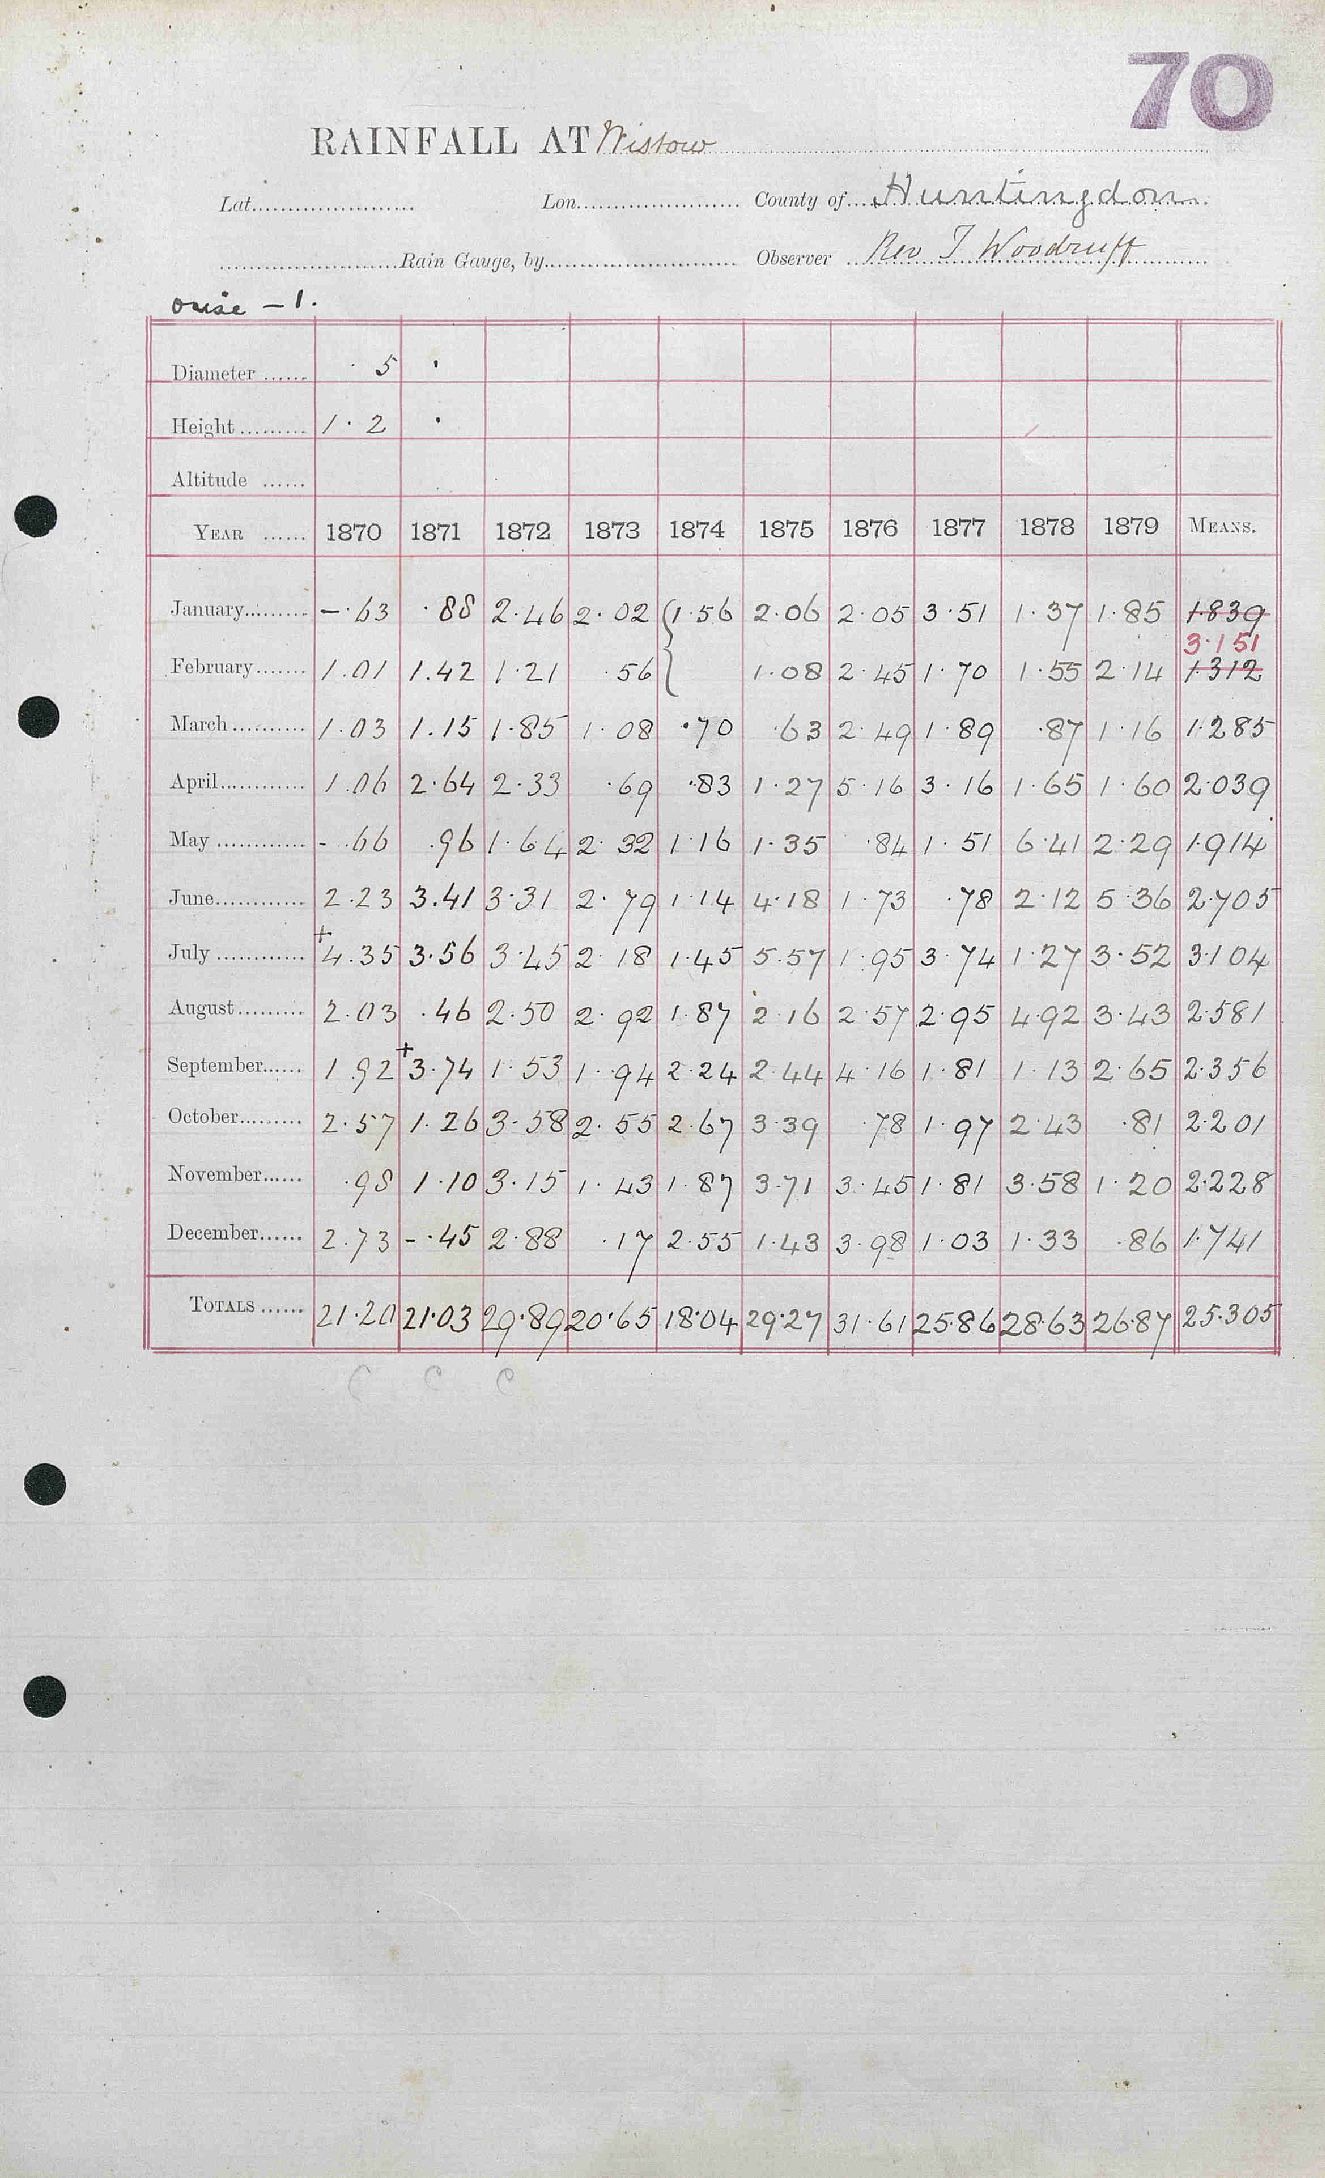 70
RAINFALL AT Wistow
Lat. Lon. County of Huntingdon
Rain Gauge, by Observer Rev T Woodruff
ouse - 1.
Diameter ...... 5 .
Height ......... 1.2 .
Altitude ......
YEAR ...... 1870 1871 1872 1873 1874 1875 1876 1877 1878 1879 MEANS.
January -.63 .88 2.46 2.02 { 1.56 2.06 2.05 3.51 1.37 1.85 1.839
3.151
February 1.01 1.42 1.21 .56 1.08 2.45 1.70 1.55 2.14 1.312
March 1.03 1.15 1.85 1.08 .70 .63 2.49 1.89 .87 1.16 1.285
April 1.06 2.64 2.33 .69 .83 1.27 5.16 3.16 1.65 1.60 2.039
May -.66 .96 1.64 2.32 1.16 1.35 .84 1.51 6.41 2.29 1.914
June 2.23 3.41 3.31 2.79 1.14 4.18 1.73 .78 2.12 5.36 2.705
July +4.35 3.56 3.45 2.18 1.45 5.57 1.95 3.74 1.27 3.52 3.104
August 2.03 .46 2.50 2.92 1.87 2.16 2.57 2.95 4.92 3.43 2.581
September 1.92 +3.74 1.53 1.94 2.24 2.44 4.16 1.81 1.13 2.65 2.356
October 2.57 1.26 3.58 2.55 2.67 3.39 .78 1.97 2.43 .81 2.201
November .98 1.10 3.15 1.43 1.87 3.71 3.45 1.81 3.58 1.20 2.228
December 2.73 -.45 2.88 .17 2.55 1.43 3.98 1.03 1.33 .86 1.741
TOTALS ...... 21.20 21.03 29.89 20.65 18.04 29.27 31.61 25.86 28.63 26.87 25.305
C C C